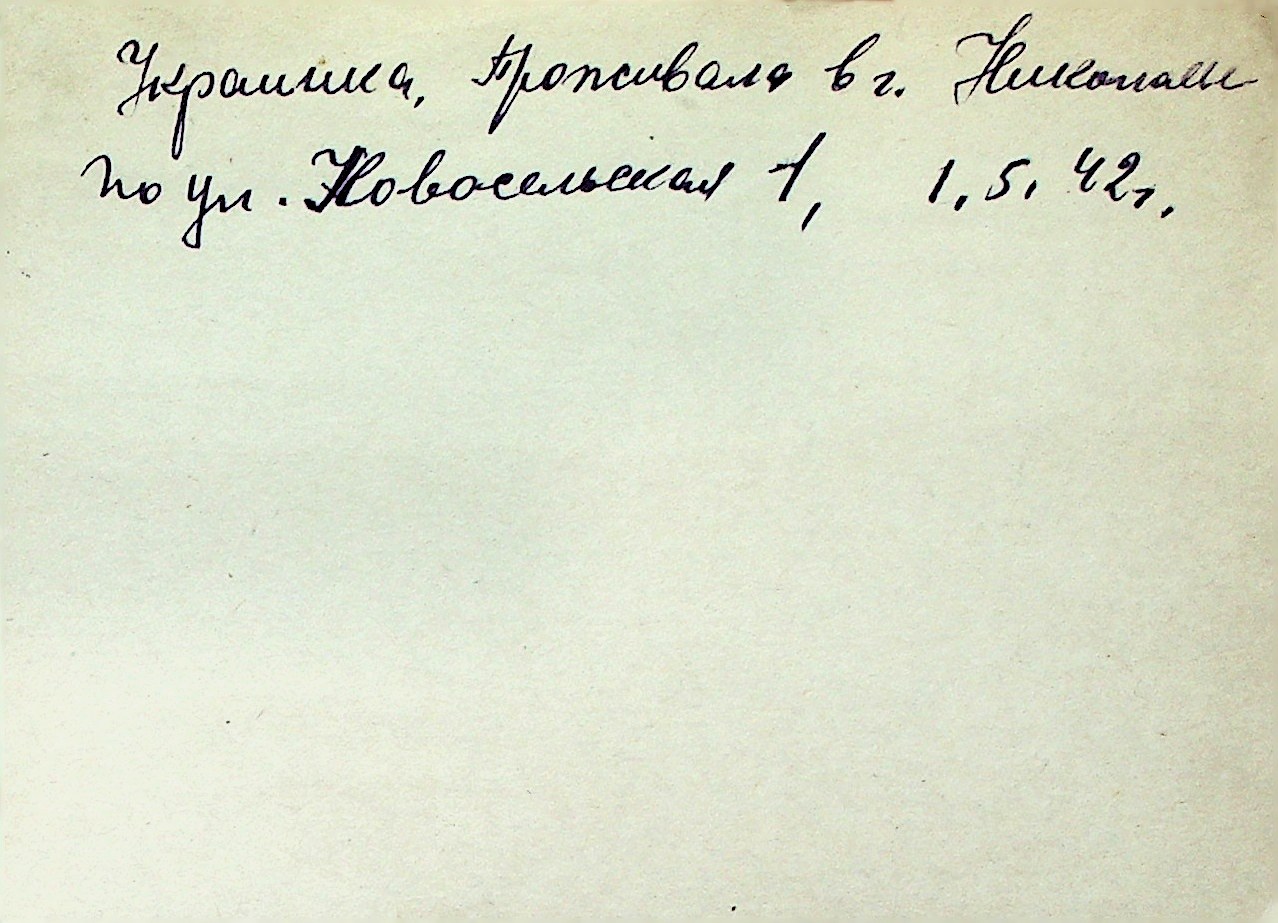 Украинка, Проживала в г. Никополе
по ул. Новосельская 1, 1.5.42г.